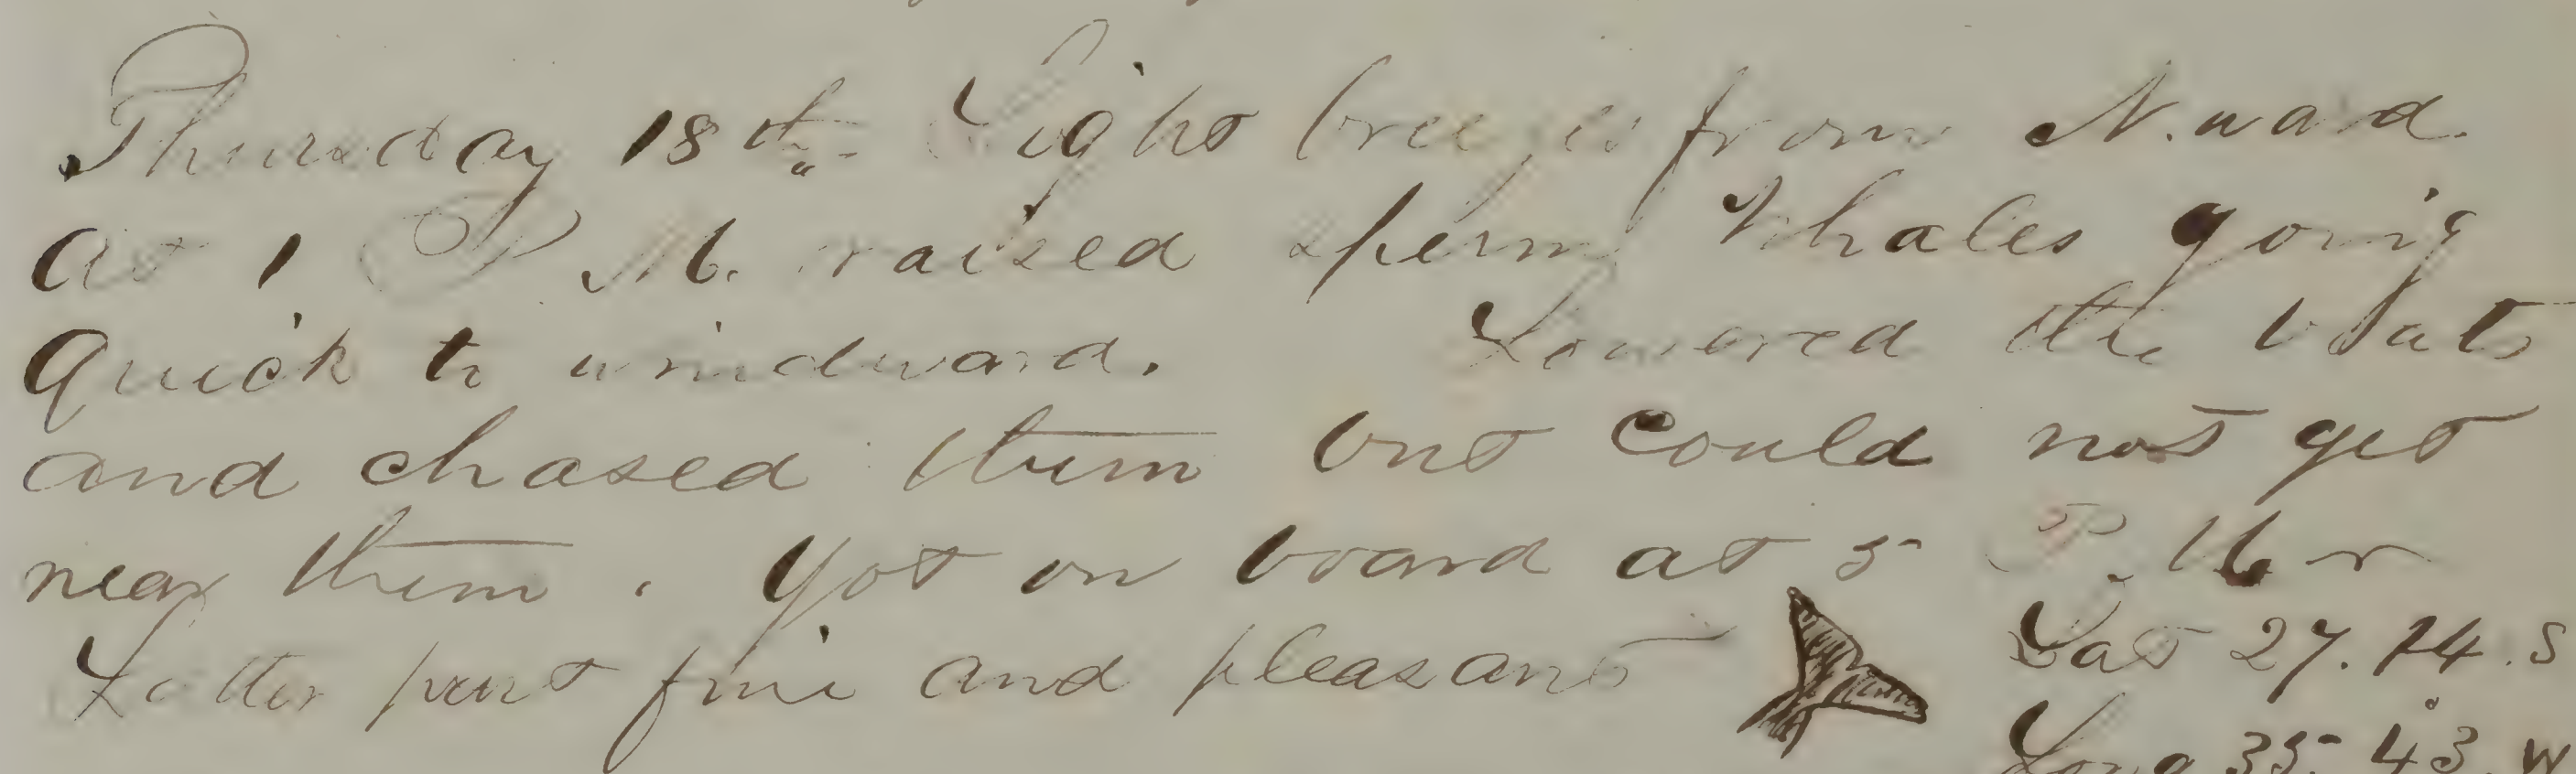 Thursday 18th Light breezes from N.ward
At 1 P M. raised sperm Whales going
Quick to windward. Lowered the boats
and chased them but could not get
near them. Got on board at 5 P.M
Latter part fine and pleasant
Lat 27.14.S
Long 35.43.W